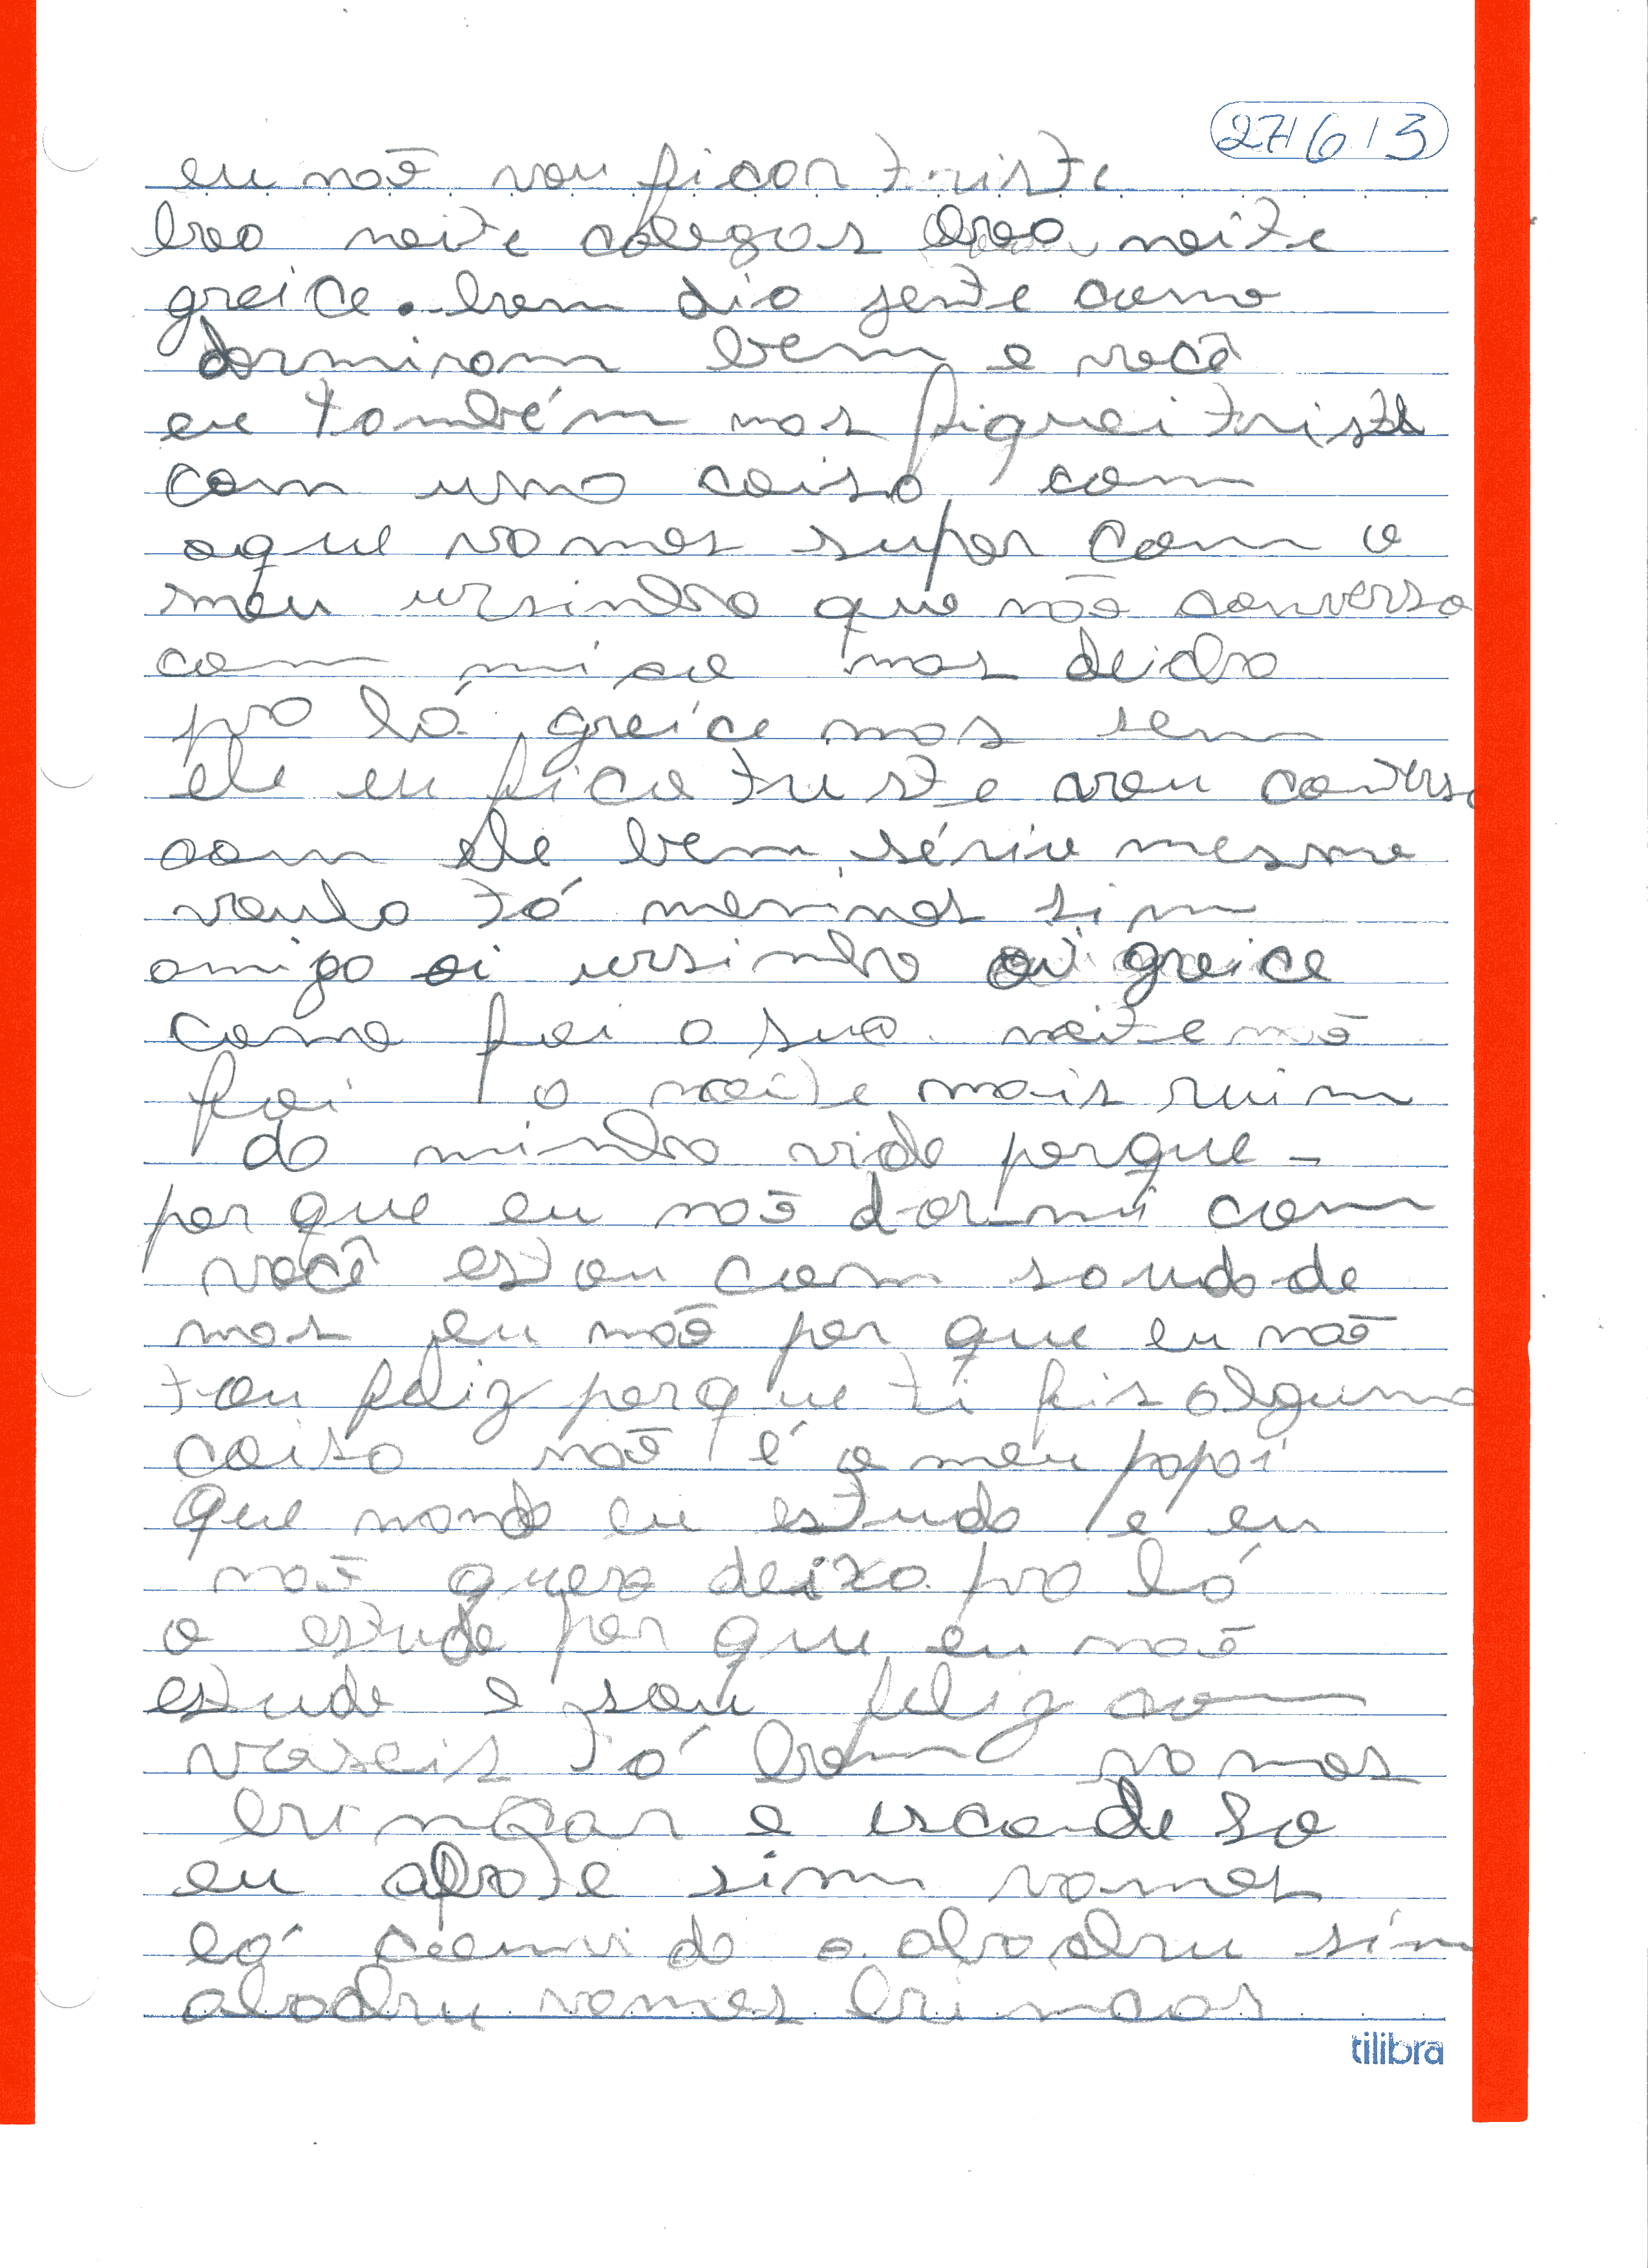 27/6/13
eu não vou ficar triste
boa noite colegas boa noite
greice. bom dia gente como
dormiram bem e você
eu também mas fiquei triste
com uma coisa com
oque vamos supor com o
meu ursinho que não conversa
com migo mas deicha
pra lá greice mas sem
ele eu fico triste vou conversa
com ele bem sério mesmo
vaula tá meninas sim
amigo oi ursinho oi greice
como foi a sua noite não
foi a noite mais ruim
da minha vida porque -
por que eu não dormi com
você estou com saudade
mas eu não por que eu não
tou feliz porque ti fis alguma
coisa não é o meu papai
que manda eu estuda e eu
não quero deixa pra lá
o estudo por que eu não
estudo e sou feliz com
vaseis tá bom vamos
brincar e esconde so
eu afote sim vamos
lá convida o abadru sim
abadru vamos brincas
tilibra